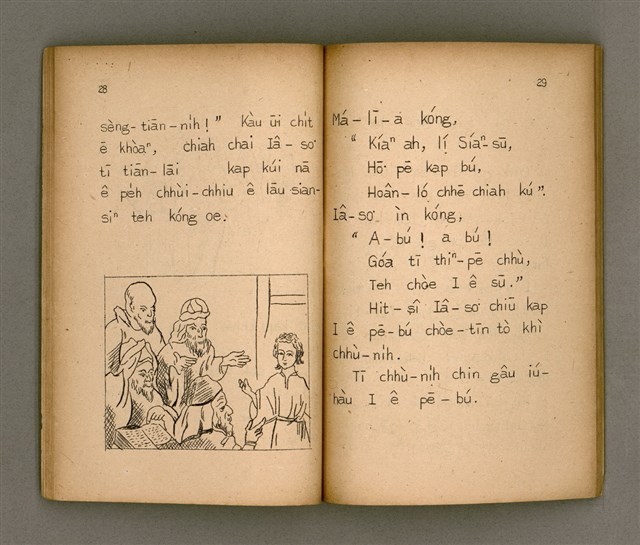 28
sèng-tiān-ni̍h!” Kàu ūi chi̍t
ē khòaⁿ, chiah chai Iâ-so͘
tī tiān-lāi kap kúi nā
ê pe̍h chhùi-chhiu ê lāu sian-
siⁿ teh kóng oe.
29
Má-lī-a kóng,
“ Kíaⁿ ah, lí Síaⁿ-sū,
Hō͘ pē kap bú,
Hoân-ló chhē chiah kú”.
Iâ-so͘ ìn kóng,
“ A-bú! a bú!
Góa tī thiⁿ-pē chhù,
Teh chòe I ê sū.”
Hit-sî Iâ-so͘ chiū kap
I ê pē-bú chòe-tīn tò khì
chhù-ni̍h.
Tī chhù-ni̍h chin gâu iú-
hàu I ê pē-bú.